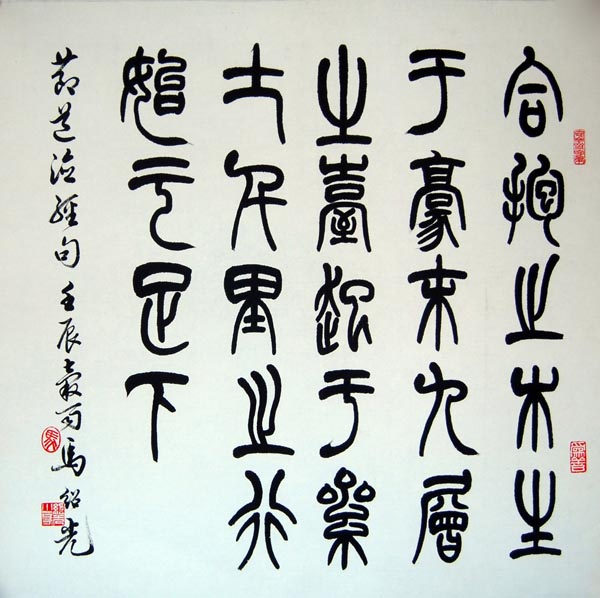 合抱之木生
于豪末九層
之臺起于絫
土千里之行
始于足下
節道德經句 壬辰穀雨 馬紹光
馬